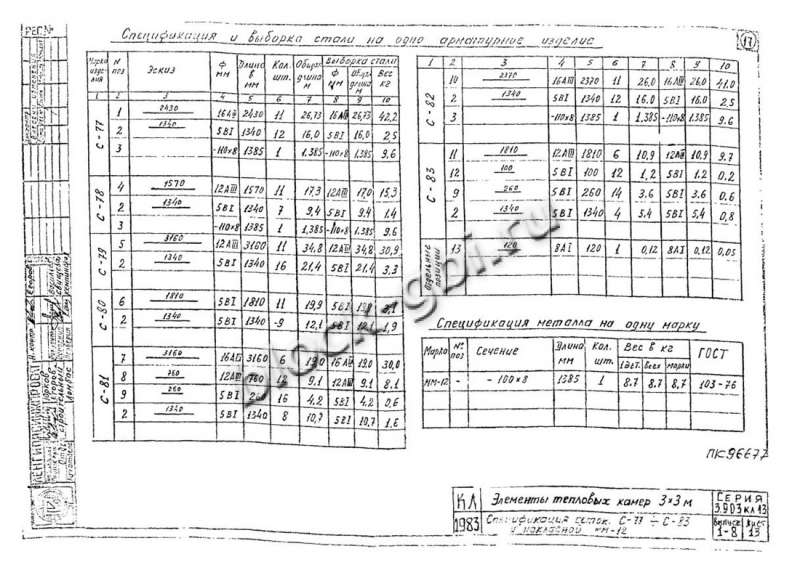 Спецификация и выборка стали на одно арматурное изделие
17
Марка изделия | № поз | Эскиз | ф мм | Длина в мм | Кол. шт. | Общая длина м | Выборка стали: ф мм | Общ. длина м | Вес кг
1 2 3 4 5 6 7 8 9 10
С-77
1 2430 16АIII 2430 11 26,73 16АIII 26,73 42,2
2 1340 5ВI 1340 12 16,0 5ВI 16,0 2,5
3 -110×8 1385 1 1.385 -110×8 1.385 9.6
С-78
4 1570 12АIII 1570 11 17,3 12АIII 17,0 15,3
2 1340 5ВI 1340 7 9,4 5ВI 9,4 1.4
3 -110×8 1385 1 1,385 -110×8 1.385 9.6
С-79
5 3160 12АIII 3160 11 34,8 12АIII 34,8 30,9
2 1340 5ВI 1340 16 21,4 5ВI 21,4 3,3
С-80
6 1810 5ВI 1810 11 19,9 5ВI
2 1340 5ВI 1340 9 12,1 5ВI 12,1 1,9
С-81
7 3160 3160 6 19,0 19,0 30,0
8 760 12АIII 760 12 9,1 12АIII 9,1 8,1
9 260 5ВI 260 16 4,2 5ВI 4,2 0,6
2 1340 5ВI 1340 8 10,7 5ВI 10,7 1,6
1 2 3 4 5 6 7 8 9 10
С-82
10 2370 16АIII 2370 11 26,0 16АIII 26,0 41,0
2 1340 5ВI 1340 12 16.0 5ВI 16.0 2.5
3 -110×8 1385 1 1.385 -110×8 1.385 9.6
С-83
11 1810 12АIII 1810 6 10,9 12АIII 10,9 9.7
12 100 5ВI 100 12 1.2 5ВI 1.2 0.2
9 260 5ВI 260 14 3.6 5ВI 3.6 0,6
2 1340 5ВI 1340 4 5,4 5ВI 5,4 0,8
Отдельные позиции
13 120 8АI 120 1 0,12 8АI 0,12 0,05
Спецификация металла на одну марку
Марка | № поз | Сечение | Длина мм | Кол. шт. | Вес в кг: 1 дет. | всех | марки | ГОСТ
ММ-12 - -100×8 1385 1 8.7 8.7 8,7 103-76
ПК96677
КЛ
1983
Элементы тепловых камер 3×3 м
Спецификация сеток С-77 ÷ С-83
и накладной ММ-12
Серия
3.903 КЛ 13
Выпуск 1-8
Лист 13
ЛЕНГИПРОИНЖПРОЕКТ
block-gbi.ru